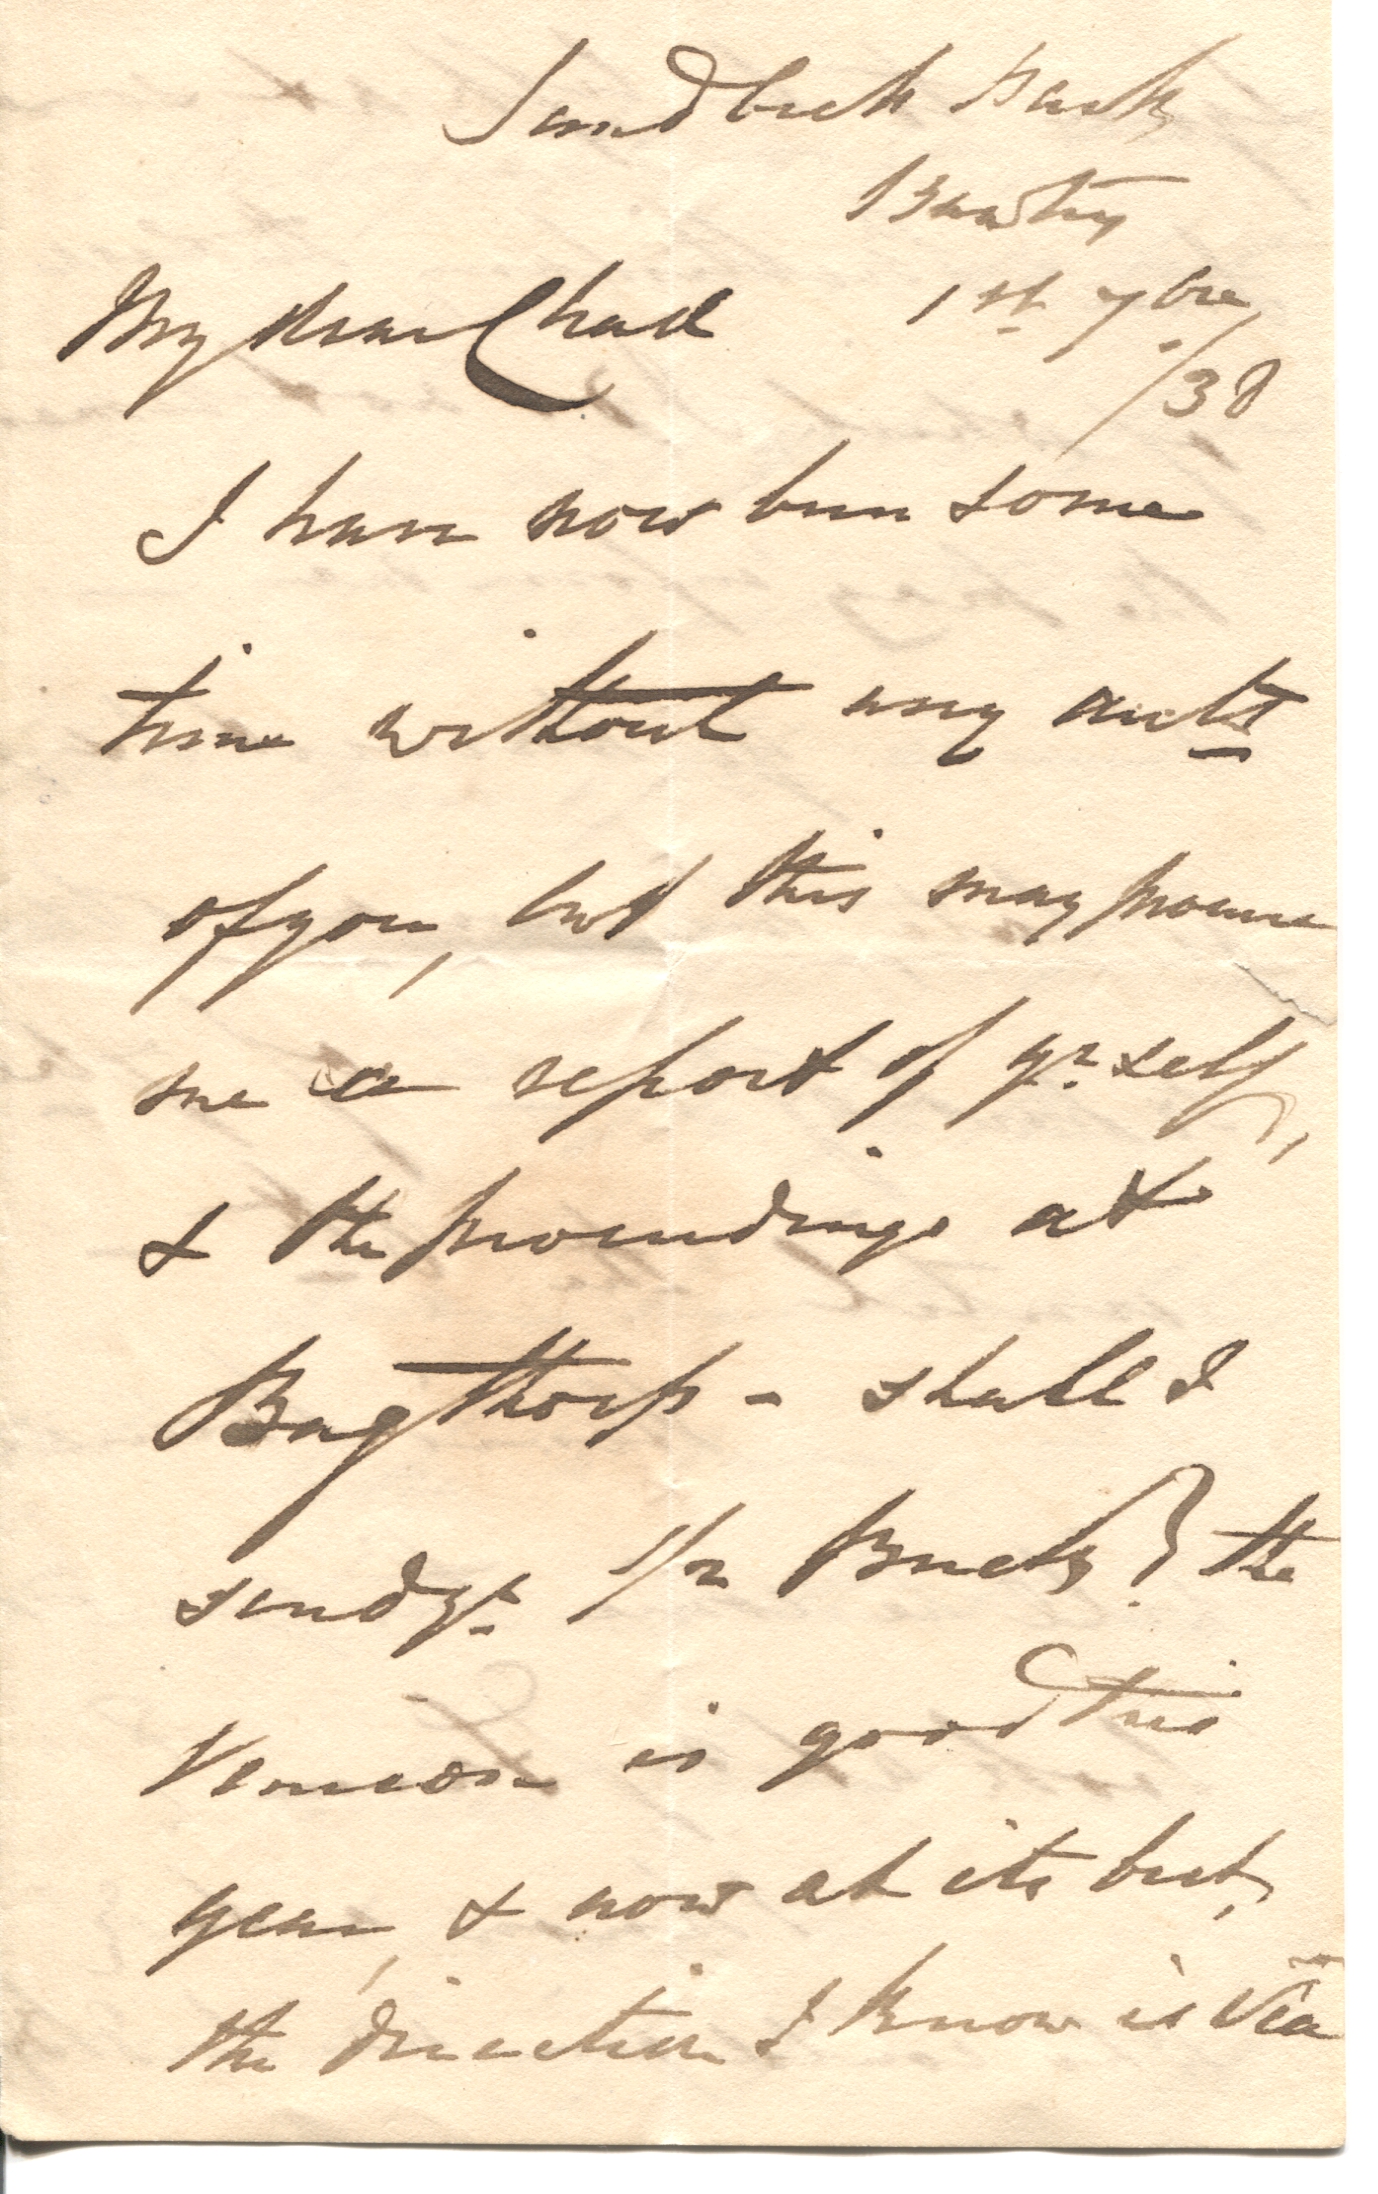 Sandbeck Park
Bawtry
1st 7bre
/38
My dear Chad
I have now been some
time without any acct
of you, but this may procure
me a report of yr self,
& the proceedings at
Bagthorp - shall I
send yr 1/2 Buck? the
Venison is good this
year, & now at its best,
the direction I know is Via